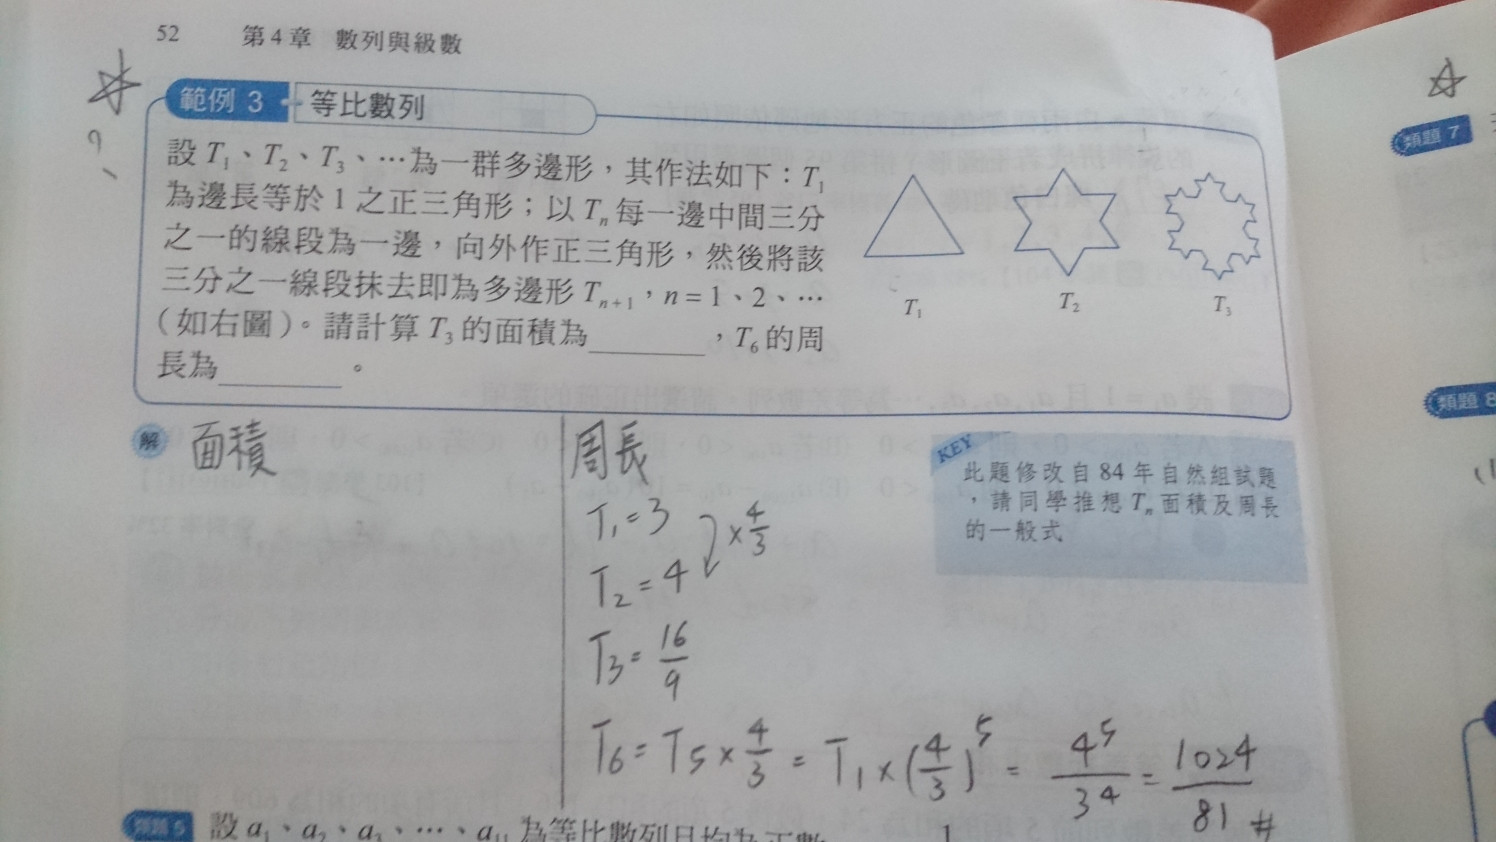 52 第4章 數列與級數
範例 3 等比數列
設 T₁、T₂、T₃、…為一群多邊形，其作法如下：T₁
為邊長等於 1 之正三角形；以 Tₙ 每一邊中間三分
之一的線段為一邊，向外作正三角形，然後將該
三分之一線段抹去即為多邊形 Tₙ₊₁，n = 1、2、…
（如右圖）。請計算 T₃ 的面積為＿＿＿＿，T₆ 的周
長為＿＿＿＿。
T₁ T₂ T₃
解 面積
周長
T₁=3
×4/3
T₂=4
T₃=16/9
T₆=T₅×4/3=T₁×(4/3)⁵=4⁵/3⁴=1024/81 #
KEY
此題修改自 84 年自然組試題
，請同學推想 Tₙ 面積及周長
的一般式
類題 5 設 a₁、a₂、a₃、…、a₁₁ 為等比數列且均為正數
類題 7
類題 8
(1